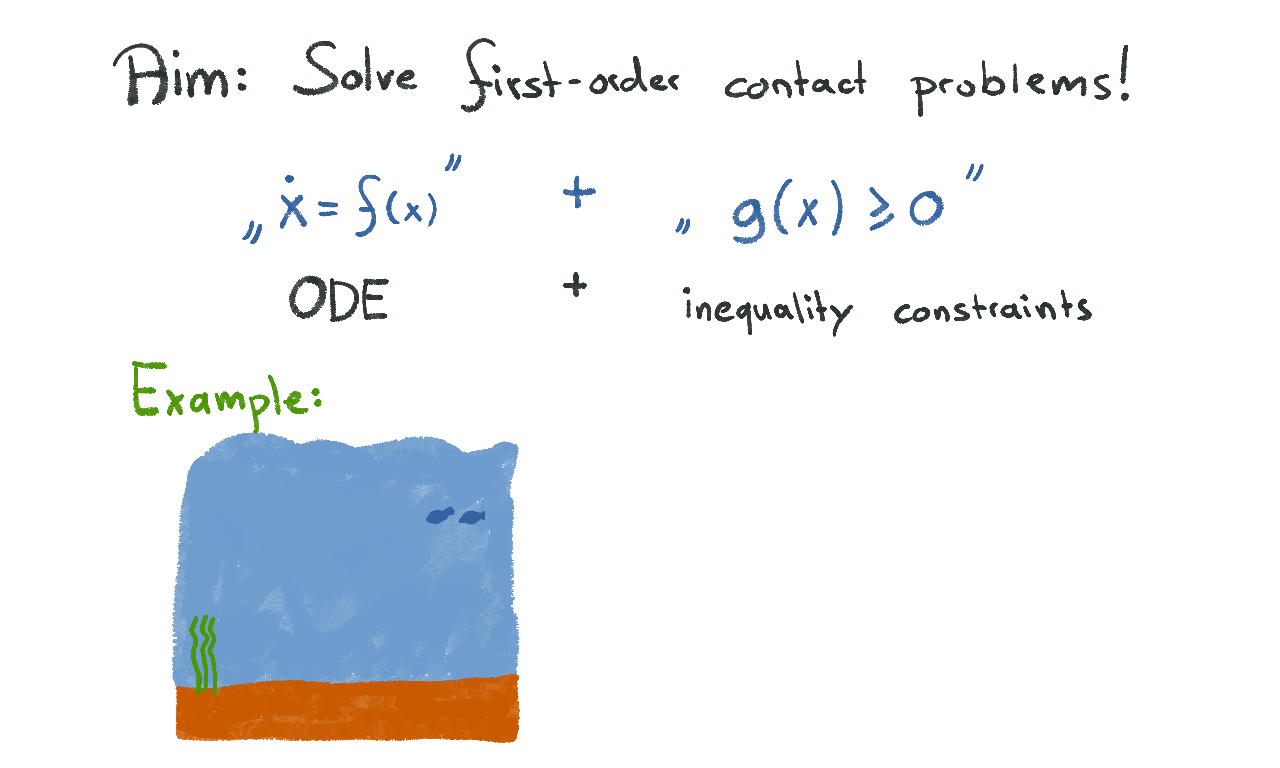 Aim: Solve first-order contact problems!
„ẋ = f(x)” + „g(x) ⩾ 0”
ODE + inequality constraints
Example: